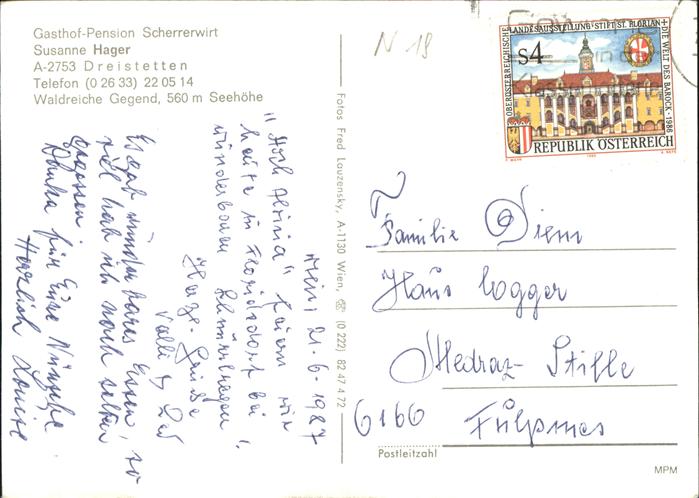 Gasthof-Pension Scherrerwirt
Susanne Hager
A-2753 Dreistetten
Telefon (0 26 33) 22 05 14
Waldreiche Gegend, 560 m Seehöhe
N 18
OBERÖSTERREICHISCHE LANDESAUSSTELLUNG · STIFT ST. FLORIAN · DIE WELT DES BAROCK · 1986
S4
REPUBLIK ÖSTERREICH
Fotos Fred Lauzensky, A-1130 Wien, ☏ (0 222) 82 47 4 72
21. 6. 1987
"Hoch" feiern wir
heute in Floridsdorf bei
wunderbaren
Herzl. Grüße
Es gab wunderbares Essen, so
viel hab ich noch selten
gegessen!
Danke für Eure Wünsche
Herzlich Louise
Familie Diem
Haus Cogger
Medraz-Stille
6166 Fulpmes
Postleitzahl
MPM